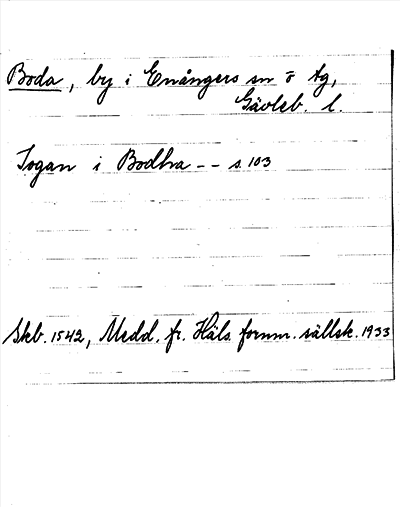 Boda, by i Enångers sn o tg,
Gävleb. l.
Jogan i Bodha -- s. 103
Skb. 1542, Medd. fr. Häls. fornm. sällsk. 1933